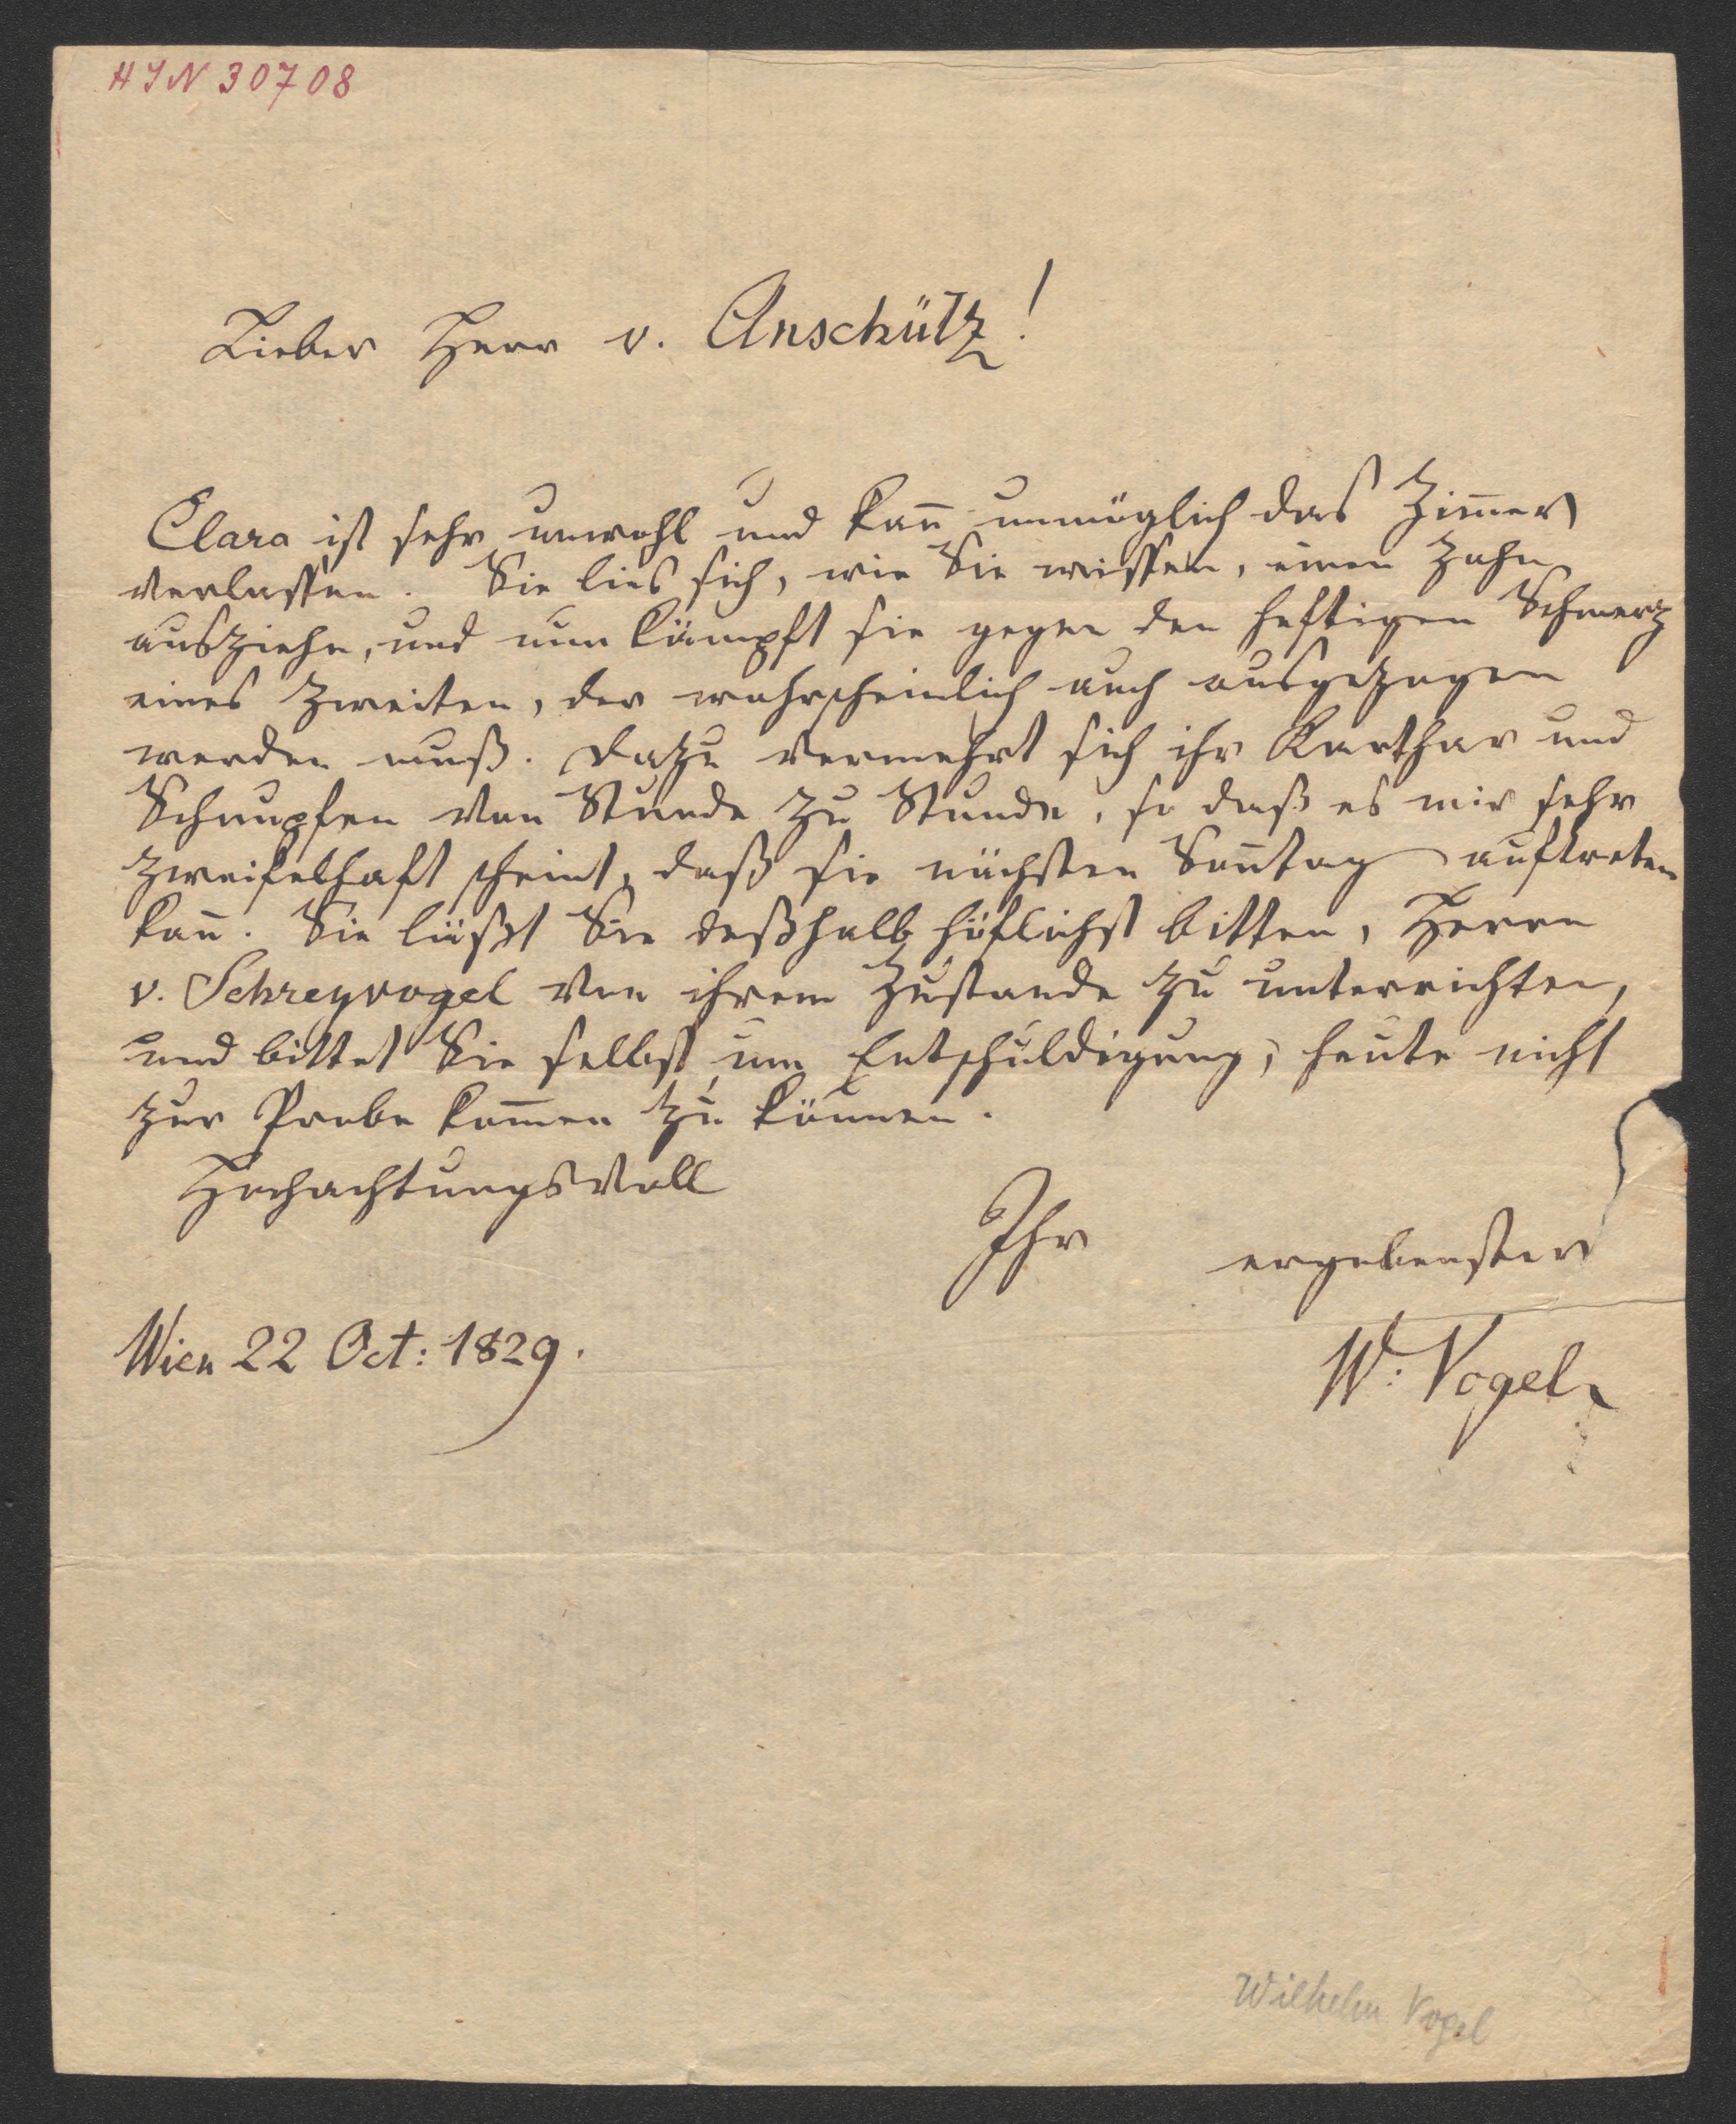 HIN 30708
Lieber Herr v. Anschütz!
Clara ist sehr unwohl und kan̄ unmöglich das Zim̄er
verlassen. Sie lies sich, wie Sie wissen, einen Zahn
ausziehn, und nun kämpft sie gegen den heftigen Schmerz
eines zweiten, der wahrscheinlich auch ausgezogen
werden muß. Dazu vermehrt sich ihr Karthar und
Schnupfen von Stunde zu Stunde, so daß es mir sehr
zweifelhaft scheint, daß sie nächsten Son̄tag auftreten
kan̄. Sie läßt Sie deßhalb höflichst bitten, Herrn
v. Schreyvogel von ihrem Zustande zu unterrichten,
und bittet Sie selbst um Entschuldigung, heute nicht
zur Probe kom̄en zu können.
Hochachtungsvoll
Ihr ergebenster
Wien 22 Oct: 1829.
W. Vogel
Wilhelm Vogel